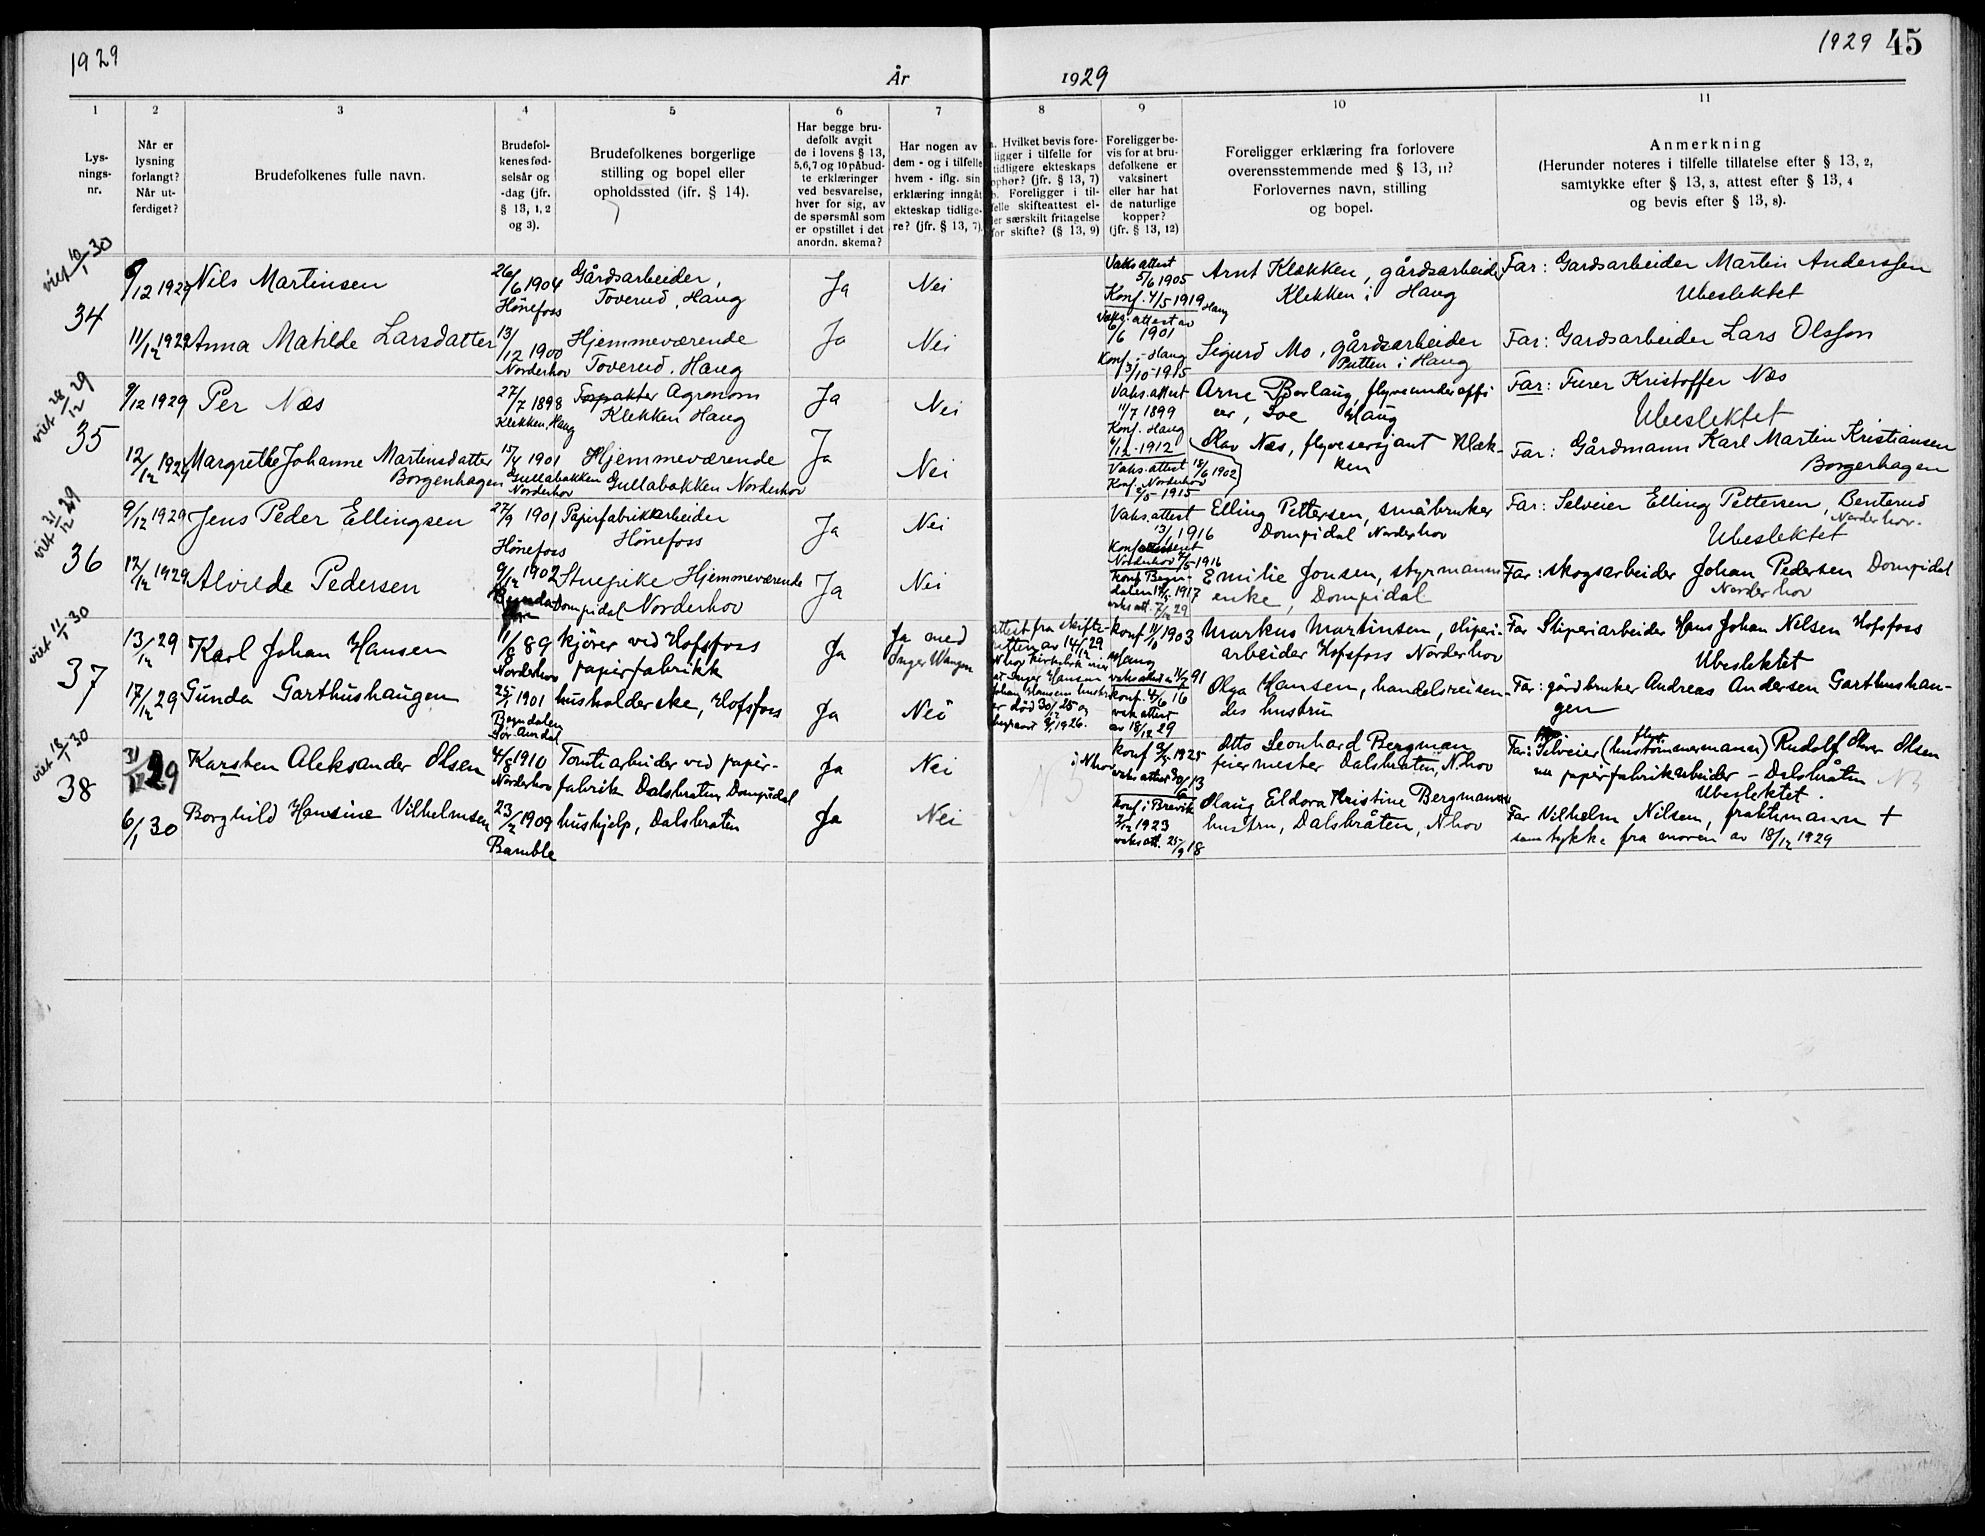 1929
År 1929
1929 45
1
2
3
4
5
6
7
8
9
10
11
Lys-
nings-
nr.
Når er
lysning
forlangt?
Når ut-
ferdiget?
Brudefolkenes fulle navn.
Brudefol-
kenes fød-
selsår og
-dag (jfr.
§ 13, 1, 2
og 3).
Brudefolkenes borgerlige
stilling og bopel eller
opholdssted (ifr. § 14).
Har begge bru-
defolk avgit
de i lovens § 13,
5, 6, 7 og 10 påbud-
te erklæringer
ved besvarelse,
hver for sig, av
de spørsmål som
er opstillet i det
anordn. skema?
Har nogen av
dem - og i tilfelle
hvem - iflg. sin
erklæring inngåt
ekteskap tidlige-
re? (jfr. § 13, 7).
a. Hvilket bevis fore-
ligger i tilfelle for
tidligere ekteskaps
ophør? (jfr. § 13, 7)
b. Foreligger i til-
felle skifteattest el-
ler særskilt fritagelse
for skifte? (§ 13, 9)
Foreligger be-
vis for at bru-
defolkene er
vaksinert
eller har hat
de naturlige
kopper?
(jfr. § 13, 12)
Foreligger erklæring fra forlovere
overensstemmende med § 13, 11?
Forlovernes navn, stilling
og bopel.
Anmerkning
(Herunder noteres i tilfelle tillatelse efter § 13, 2,
samtykke efter § 13, 3, attest efter § 13, 4
og bevis efter § 13, 8).
viet 10/1 30
34
9/12 1929 Nils Martinsen
26/6 1904
Hønefoss
Gårdsarbeider,
Toverud, Haug
Ja
Nei
Vaks attest
5/6 1905
Konf. 4/5 1919 Haug
Arnt Klækken, gårdsarbeider
Klekken i Haug
Far: Gardsarbeider Martin Anderssen
Ubeslektet
11/12 1929 Anna Matilde Larsdatter
13/12 1900
Norderhov
Hjemmeværende
Toverud, Haug
Ja
Nei
Vaks. attest av
6/6 1901
Konf. Haug
3/10 1915
Sigurd Mo, gårdsarbeider
Putten i Haug
Far: Gardsarbeider Lars Olsson
viet 28/12 29
35
9/12 1929 Per Næs
27/7 1898
Klekken, Haug
Agronom
Klekken, Haug
Ja
Nei
Vaks. attest
11/7 1899
Konf. Haug
6/12 1912
Arne Borlaug, flyveunderoffi
cer, Soe Haug
Far: Furer Kristoffer Næs
Ubeslektet
12/12 1929 Margrethe Johanne Martinsdatter
Borgenhagen
15/4 1901
Gullabakken
Norderhov
Hjemmeværende
Gullabakken Norderhov
Ja
Nei
Vaks. attest 18/6 1902
Konf. Norderhov
2/5 1915
Olav Næs, flyvesersjant Klæk-
ken
Far: Gårdmann Karl Martin Kristiansen
Borgerhagen
viet 31/12 29
36
9/12 1929 Jens Peder Ellingsen
27/9 1901
Hønefoss
Papirfabrikkarbeider
Hønefoss
Ja
Nei
Vaks. attest
13/1 1916
Konfirmeret
Norderhov 7/5 1916
Elling Pettersen, småbruker
Dompidal Norderhov
Far: Selveier Elling Pettersen, Benterud
Norderhov.
Ubeslektet
12/12 1929 Alvilde Pedersen
9/12 1902
Stuepike Hjemmeværende
Dompidal Norderhov
Ja
Nei
Konf Begn-
dalen 14/5 1917
vaks att. 7/12 29
Emilie Jonsen, styrmanns
enke, Dompidal
Far: skogsarbeider Johan Pedersen Dompidal
Norderhov
viet 11/1 30
37
13/12 29 Karl Johan Hansen
11/8 89
Norderhov
kjører ved Hofsfoss
papirfabrikk
Ja
Ja med
Inger Wangen
attest fra skifte-
retten av 14/12 29
er død 30/12 25 og
begravet 8/1 1926.
Konf 11/10 1903
Haug
Markus Martinsen, sliperi-
arbeider Hofsfoss Norderhov
Far Sliperiarbeider Hans Johan Nilsen Hofsfoss
Ubeslektet
17/12 29 Gunda Garthushaugen
25/1 1901
Begndalen
Sør Aurdal
husholderske, Hofsfoss
Ja
Nei
konf. 4/6 16
vaks attest
av 18/12 29
Olga Hansen, handelsreisen-
des hustru
Far: gårdbruker Andreas Andersen Garthushau-
gen
viet 18/1 30
38
31/12 29 Karsten Aleksander Olsen
4/8 1910
Norderhov
Tomtearbeider ved papir-
fabrik Dalsbråten Dompidal
Ja
Nei
i Nhov
konf 3/5 1925
vaks attest 30/6 13
Otto Leonhard Bergman
feiermester Dalsbraten, N.hov
Far: Selveier (hustømmermann) Rudolf Olsen
nu papirfabrikarbeider - Dalsbråten
Ubeslektet.
6/1 30 Borghild Hansine Vilhelmsen
23/2 1909
Bamble
hushjelp, Dalsbraten
Ja
Nei
konf i Brevik
2/12 1923
vaks att. 25/9 18
Olaug Eldora Kristine Bergmanns
hustru, Dalsbråten, Nhov
Far Vilhelm Nilsen, fraktemann +
samtykke fra moren av 18/12 1929